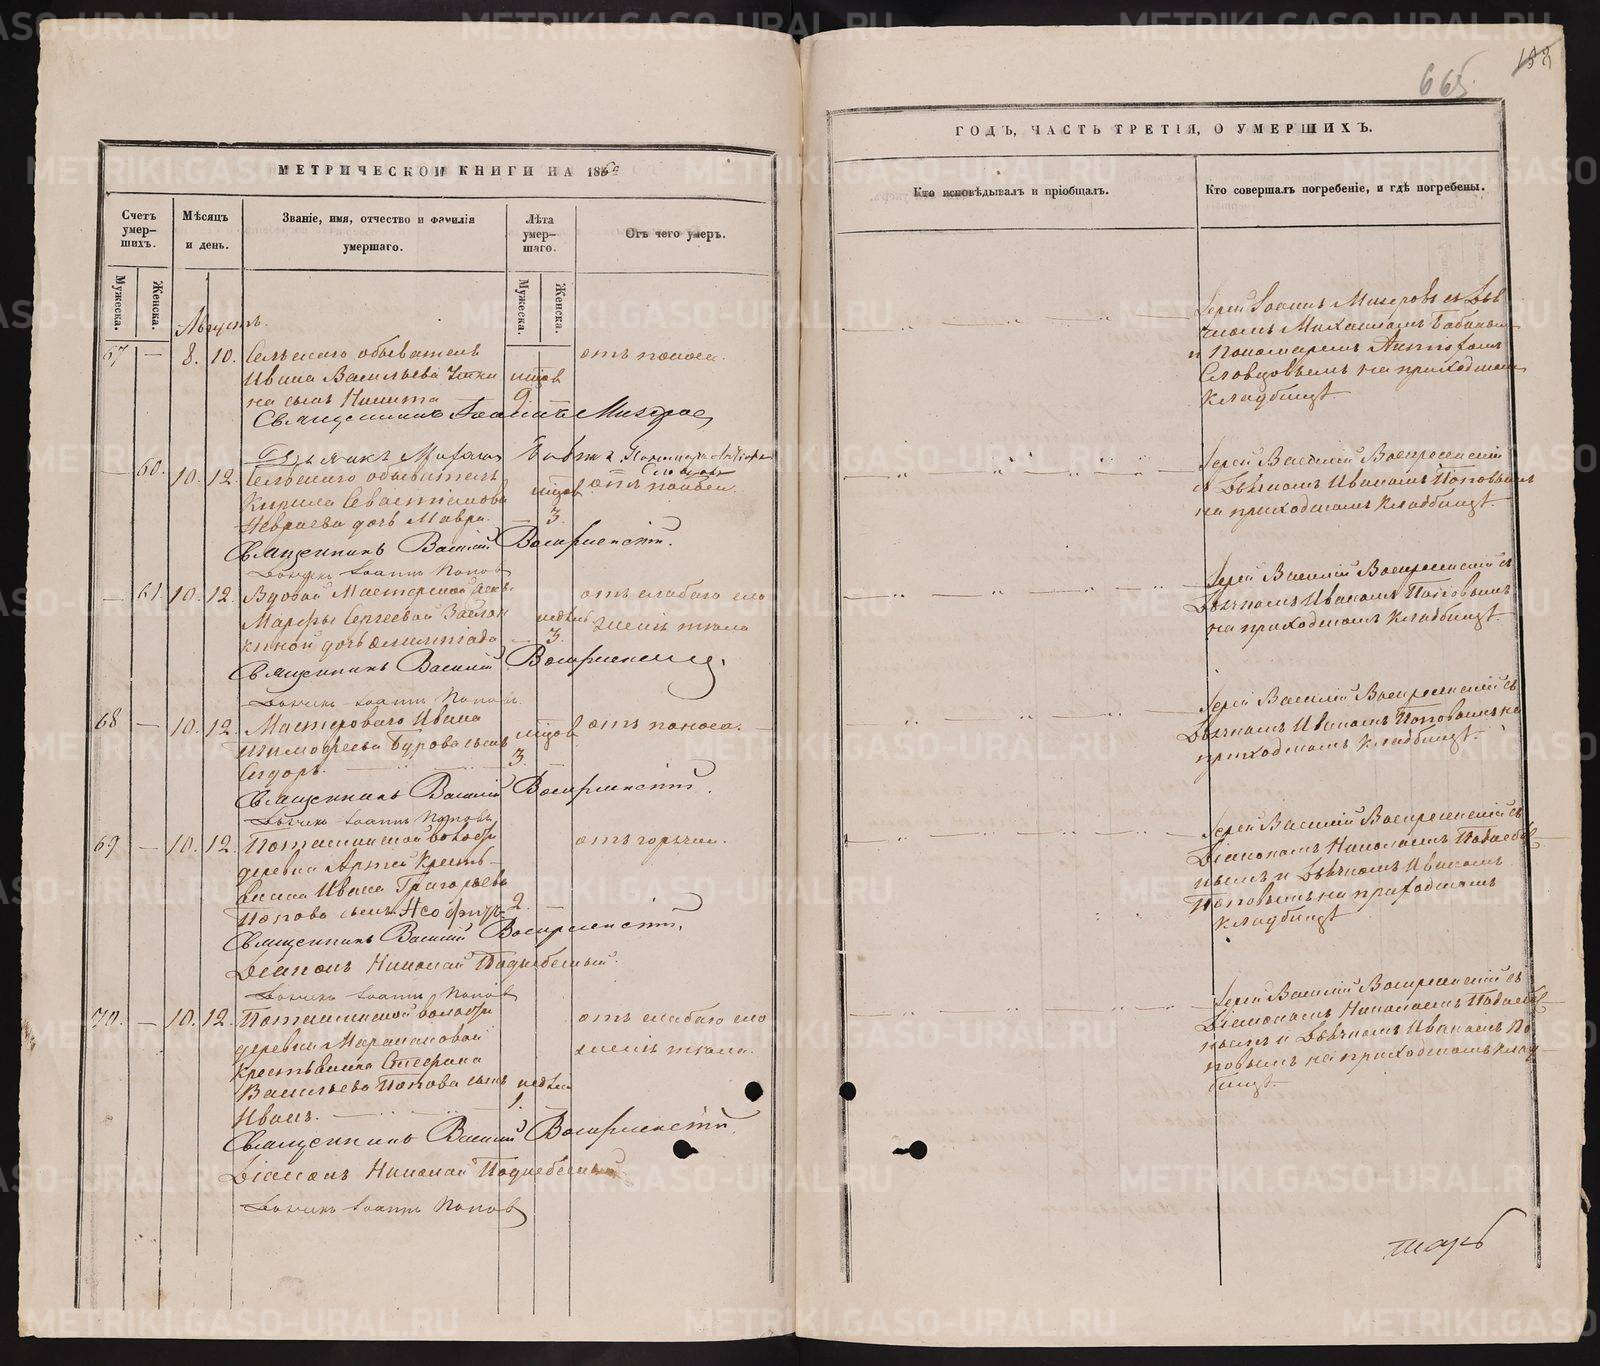 МЕТРИЧЕСКОЙ КНИГИ НА 18
Счетъ умер-шихъ.
Мѣсяцъ и день.
Званіе, имя, отчество и фамилія умершаго.
Лѣта умер-шаго.
Отъ чего умеръ.
Мужеска.
Женска.
Мужеска.
Женска.
Августъ.
67 — 8. 10. Сельскаго обывателя отъ поноса.
Ивана Васильева мцов
на сынъ Никита 9. —
Священникъ Іоаннъ
— 60. 10. 12. Сельскаго обывателя
Кирила Севастіанова мцов
дочь Мавра. — 3.
Священникъ Василій Воскресенскій.
Дьячекъ Іоаннъ Поповъ
— 61. 10. 12. Вдовой Мастерской отъ слабаго сло
Марфы Сергеевой недѣль женія тѣла
киной дочь Олимпіада — 3.
Священникъ Василій Воскресенскій.
Дьячекъ Іоаннъ Поповъ
68 — 10. 12. Мастероваго Ивана мцов отъ поноса.
Тимофеева Бурова сынъ
Сидоръ. 3. —
Священникъ Василій Воскресенскій.
Дьячекъ Іоаннъ Поповъ
69 — 10. 12. Поташинской волости отъ горячки.
деревни Артей Кресть-
янина Ивана Григорьева
Попова сынъ 2. —
Священникъ Василій Воскресенскій.
Діаконъ Николай Поднебесный.
Дьячекъ Іоаннъ Поповъ
70. — 10. 12. Поташинской волости отъ слабаго сло
деревни женія тѣла.
Крестьянина Стефана
Васильева Попова сынъ недѣли
Иванъ. 1. —
Священникъ Василій Воскресенскій.
Діаконъ Николай Поднебесный
Дьячекъ Іоаннъ Поповъ
665.
ГОДЪ, ЧАСТЬ ТРЕТІЯ, О УМЕРШИХЪ.
Кто исповѣдывалъ и пріобщалъ.
Кто совершалъ погребеніе, и гдѣ погребены.
Іерей Іоаннъ съ Дья
и Пономаремъ
Словцовымъ на приходскомъ
кладбищѣ
Іерей Василій Воскресенскій
съ Дьячкомъ Иваномъ Поповымъ
на приходскомъ кладбищѣ.
Іерей Василій Воскресенскій съ
Дьячкомъ Иваномъ Поповымъ
на приходскомъ кладбищѣ.
Іерей Василій Воскресенскій съ
Дьячкомъ Иваномъ Поповымъ на
приходскомъ кладбищѣ.
Іерей Василій Воскресенскій съ
Діакономъ Николаемъ Поднебес
нымъ и Дьячкомъ Иваномъ
Поповымъ на приходскомъ
кладбищѣ
Іерей Василій Воскресенскій съ
Діакономъ Николаемъ Поднебес
нымъ и Дьячкомъ Иваномъ По
повымъ на приходскомъ клад
бищѣ.
METRIKI.GASO-URAL.RU